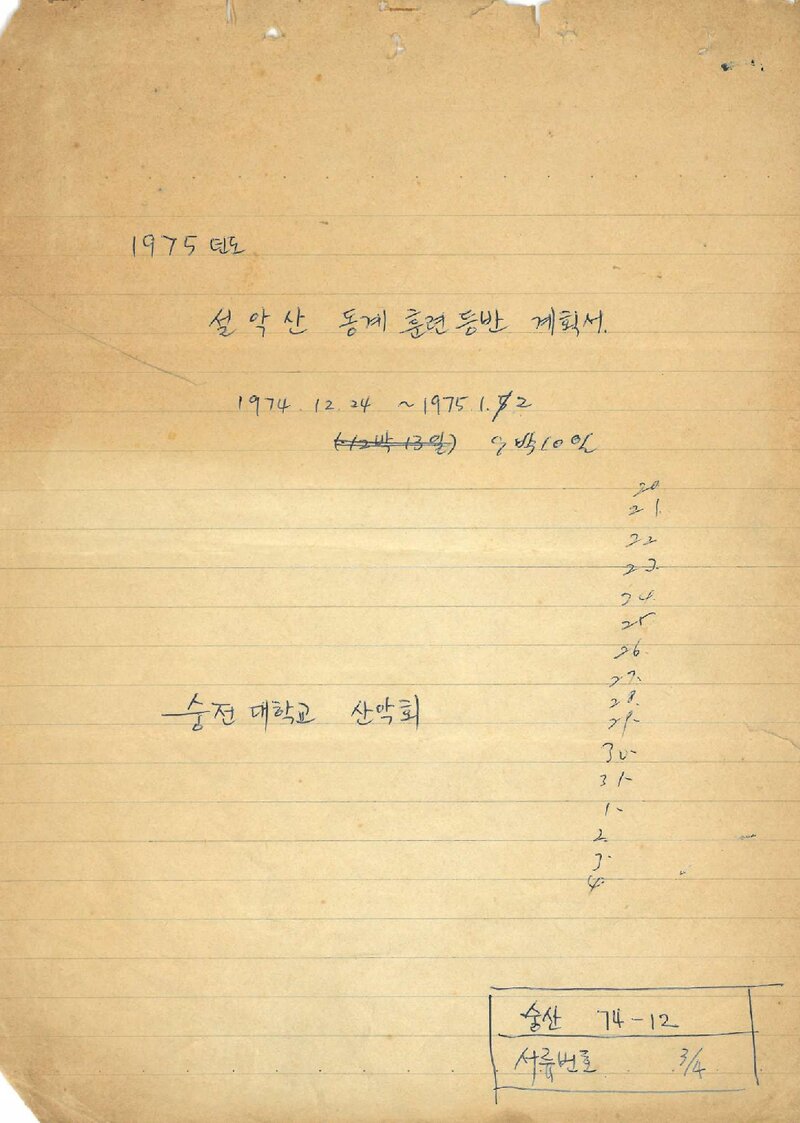 1975 년도
설악산 동계 훈련등반 계획서.
1974. 12. 24 ~ 1975. 1. 2
(12박 13일) 9박 10일
20.
21.
22
23.
24.
25
26.
27.
28.
29.
숭전대학교 산악회
30.
31.
1.
2.
3.
4.
숭산 74-12
서류번호 3/4